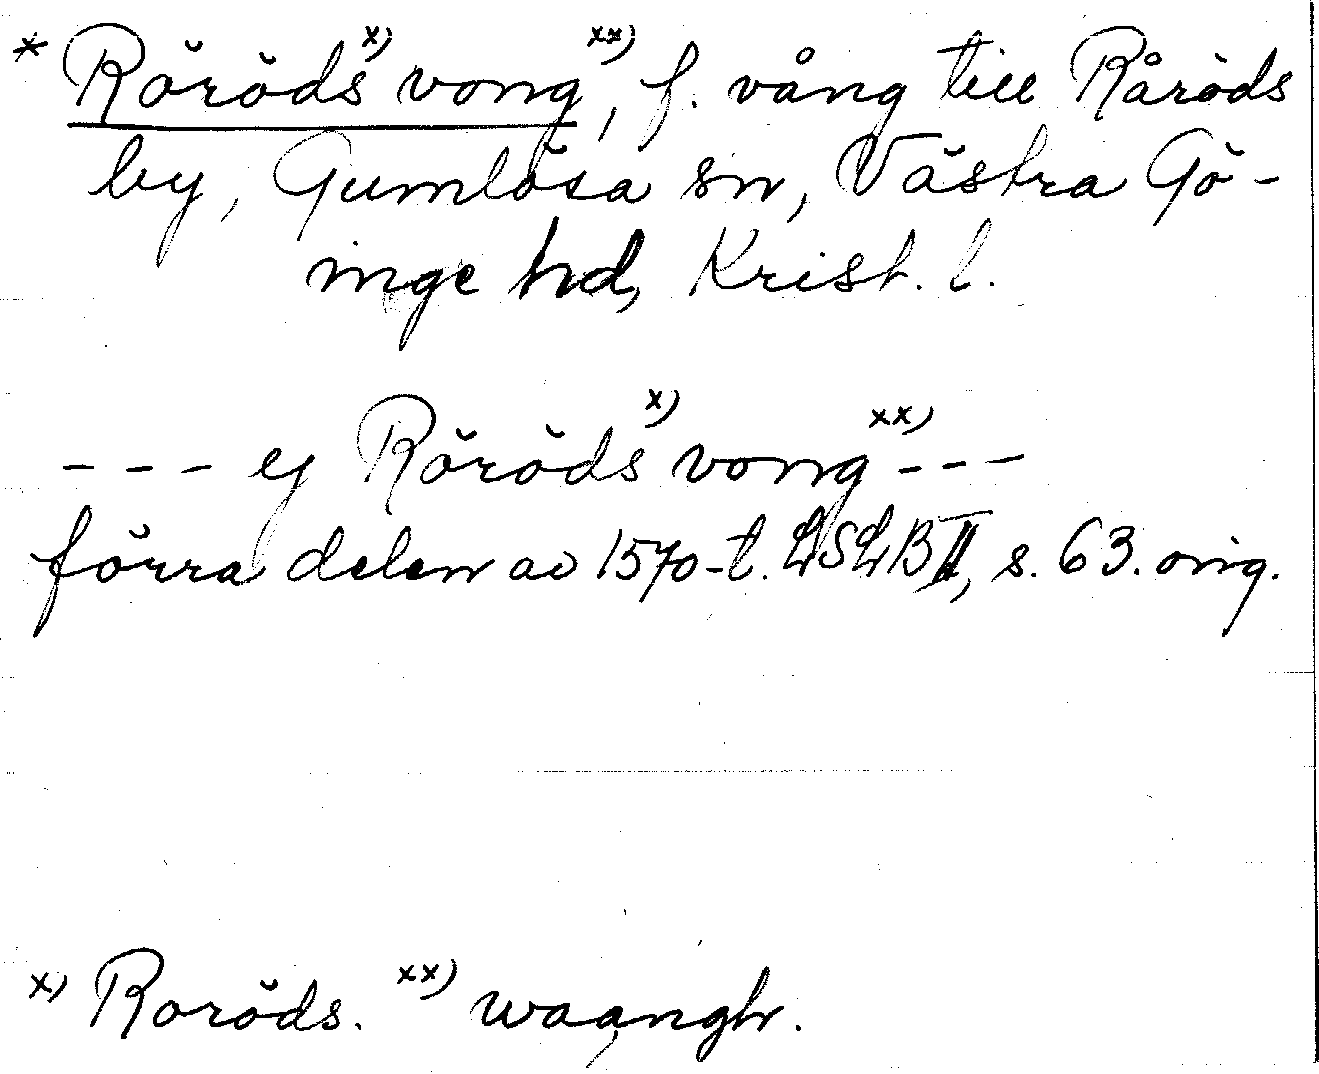 * Röröds x) vong xx), f. vång till Råröds
by, Gumlösa sn, Västra Gö-
inge hd, Krist. l.
- - - ej Röröds x) vong xx) - - -
förra delen av 1570-t. LSLB II, s. 63. orig.
x) Roröds. xx) waangh.